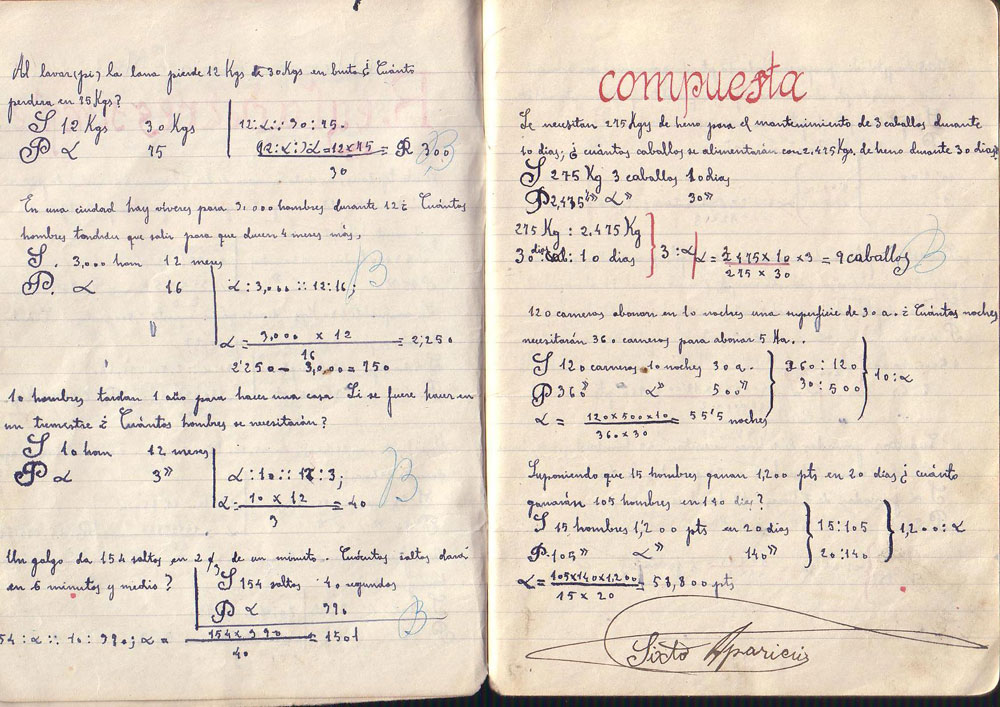 Al lavar(pi) la lana pierde 12 Kgs de 30Kgs en bruto ¿ Cuánto
perdera en 75 Kgs?
S 12 Kgs 30 Kgs
P α 75
12:α::30:75.
α=12x75 = R 300
30
B
En una ciudad hay viveres para 3,000 hombres durante 12 ¿ Cuántos
hombres tendrian que salir para que duren 4 meses más,
S. 3,000 hom 12 meses
P. α 16
α:3,000::12:16;
α = 3,000 x 12 = 2,250
16
2'250 - 3,000 = 750
B
10 hombres tardan 1 año para hacer una casa. Si se fuere hacer en
un tremestre ¿ Cuántos hombres se necesitarán?
S 10 hom 12 meses
P α 3"
α:10::12:3;
α = 10 x 12 = 40
3
B
Un galgo da 154 saltos en 2/3 de un minuto. Cuántos saltos dará
en 6 minutos y medio?
S 154 saltos 40 segundos
P α 390
54:α::40:390; α = 154x390 = 1501
40
B
compuesta
Se necesitan 275 Kgs de heno para el mantenimiento de 3 caballos durante
10 dias; ¿ cuántos caballos se alimentarán con 2.475 Kgs. de heno durante 30 dias?
S 275 Kg 3 caballos 10 dias
P 2,475" α" 30"
275 Kg : 2.475 Kg
30 dias : 10 dias
3:α
α = 2475 x 10 x 3 = 9 caballos
275 x 30
B
120 carneros abonan en 10 noches una superficie de 30 a. ¿ Cuántas noches
necesitarán 360 carneros para abonar 5 Ha..
S 120 carneros 10 noches 30 a.
P 360" α" 500"
360:120
30:500
10:α
α = 120x500x10 = 55'5 noches
360x30
Suponiendo que 15 hombres ganan 1,200 pts en 20 días ¿ cuánto
ganarán 105 hombres en 140 dias?
S 15 hombres 1,200 pts en 20 dias
P. 105" α" 140"
15:105
20:140
1,200:α
α = 105x140x1,200 = 58,800 pts
15 x 20
Sixto Aparicio